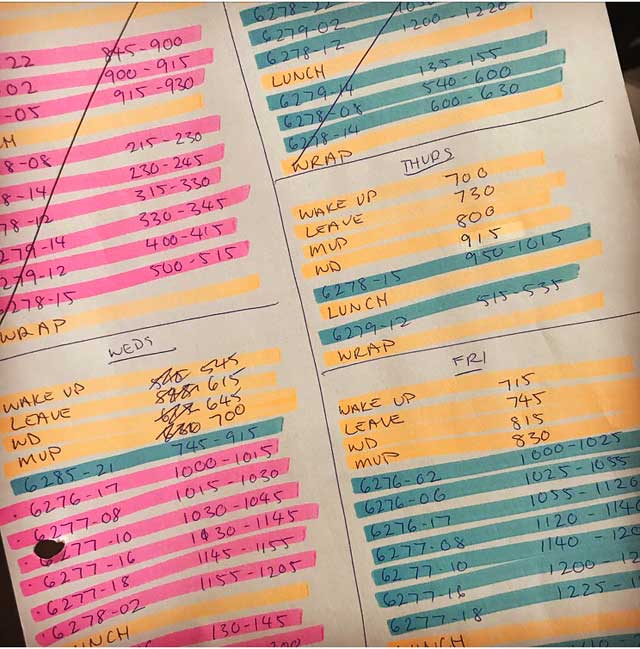 22 845-900
02 900-915
-05 915-930
H
8-08 215-230
8-14 230-245
78-12 315-330
279-14 330-345
279-12 400-415
6278-15 500-515
WRAP
6278-22
6279-02
6278-12 1200-1220
LUNCH
6279-14 135-155
6278-08 540-600
6278-14 600-630
WRAP
THURS
WAKE UP 700
LEAVE 730
MUP 800
WD 915
6278-15 950-1015
LUNCH
6279-12 515-535
WRAP
WEDS
WAKE UP 545
LEAVE 615
WD 645
MUP 630 700
6285-21 745-915
6276-17 1000-1015
6277-08 1015-1030
6277-10 1030-1045
6277-16 1030-1145
6277-18 1145-1155
6278-02 1155-1205
LUNCH
130-145
FRI
WAKE UP 715
LEAVE 745
WD 815
MUP 830
6276-02 1000-1025
6276-06 1025-1055
6276-17 1055-1120
6277-08 1120-114
6277-10 1140-120
6277-16 1200-12
6277-18 1225-1
LUNCH